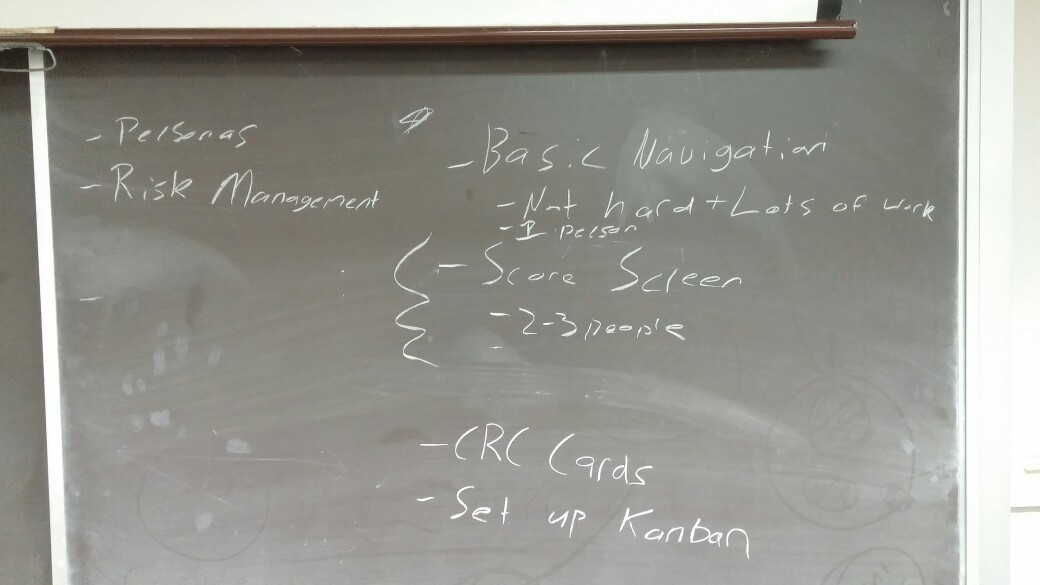 - Personas
- Risk Management
-
- Basic Navigation
- Not hard + Lots of work
- 1 person
- Score Screen
- 2-3 people
-
- CRC Cards
- Set up Kanban